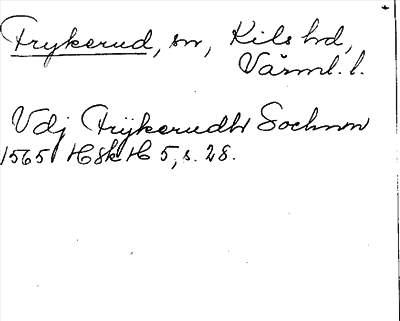 Frykerud, sn, Kils hd,
Värml. l.
Vdj Frÿkerudhr Sochnnn
1565 HSkH 5, s. 28.